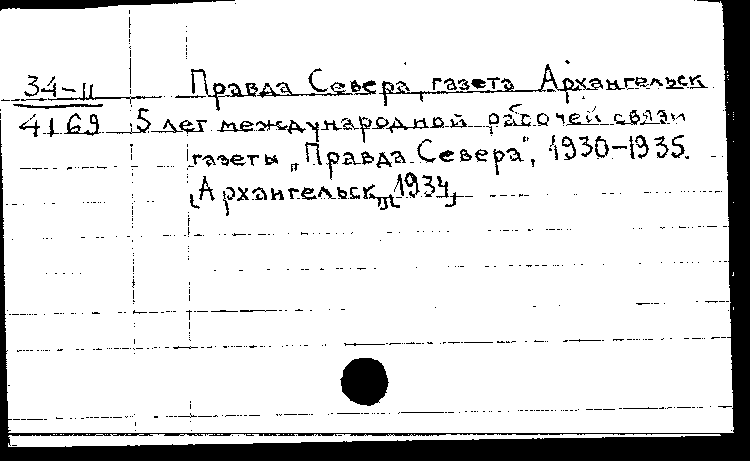 34-II Правда Севера, газета Архангельск
4169 5 лет международной рабочей связи
газеты „Правда Севера", 1930-1935.
[Архангельск,] [1934]